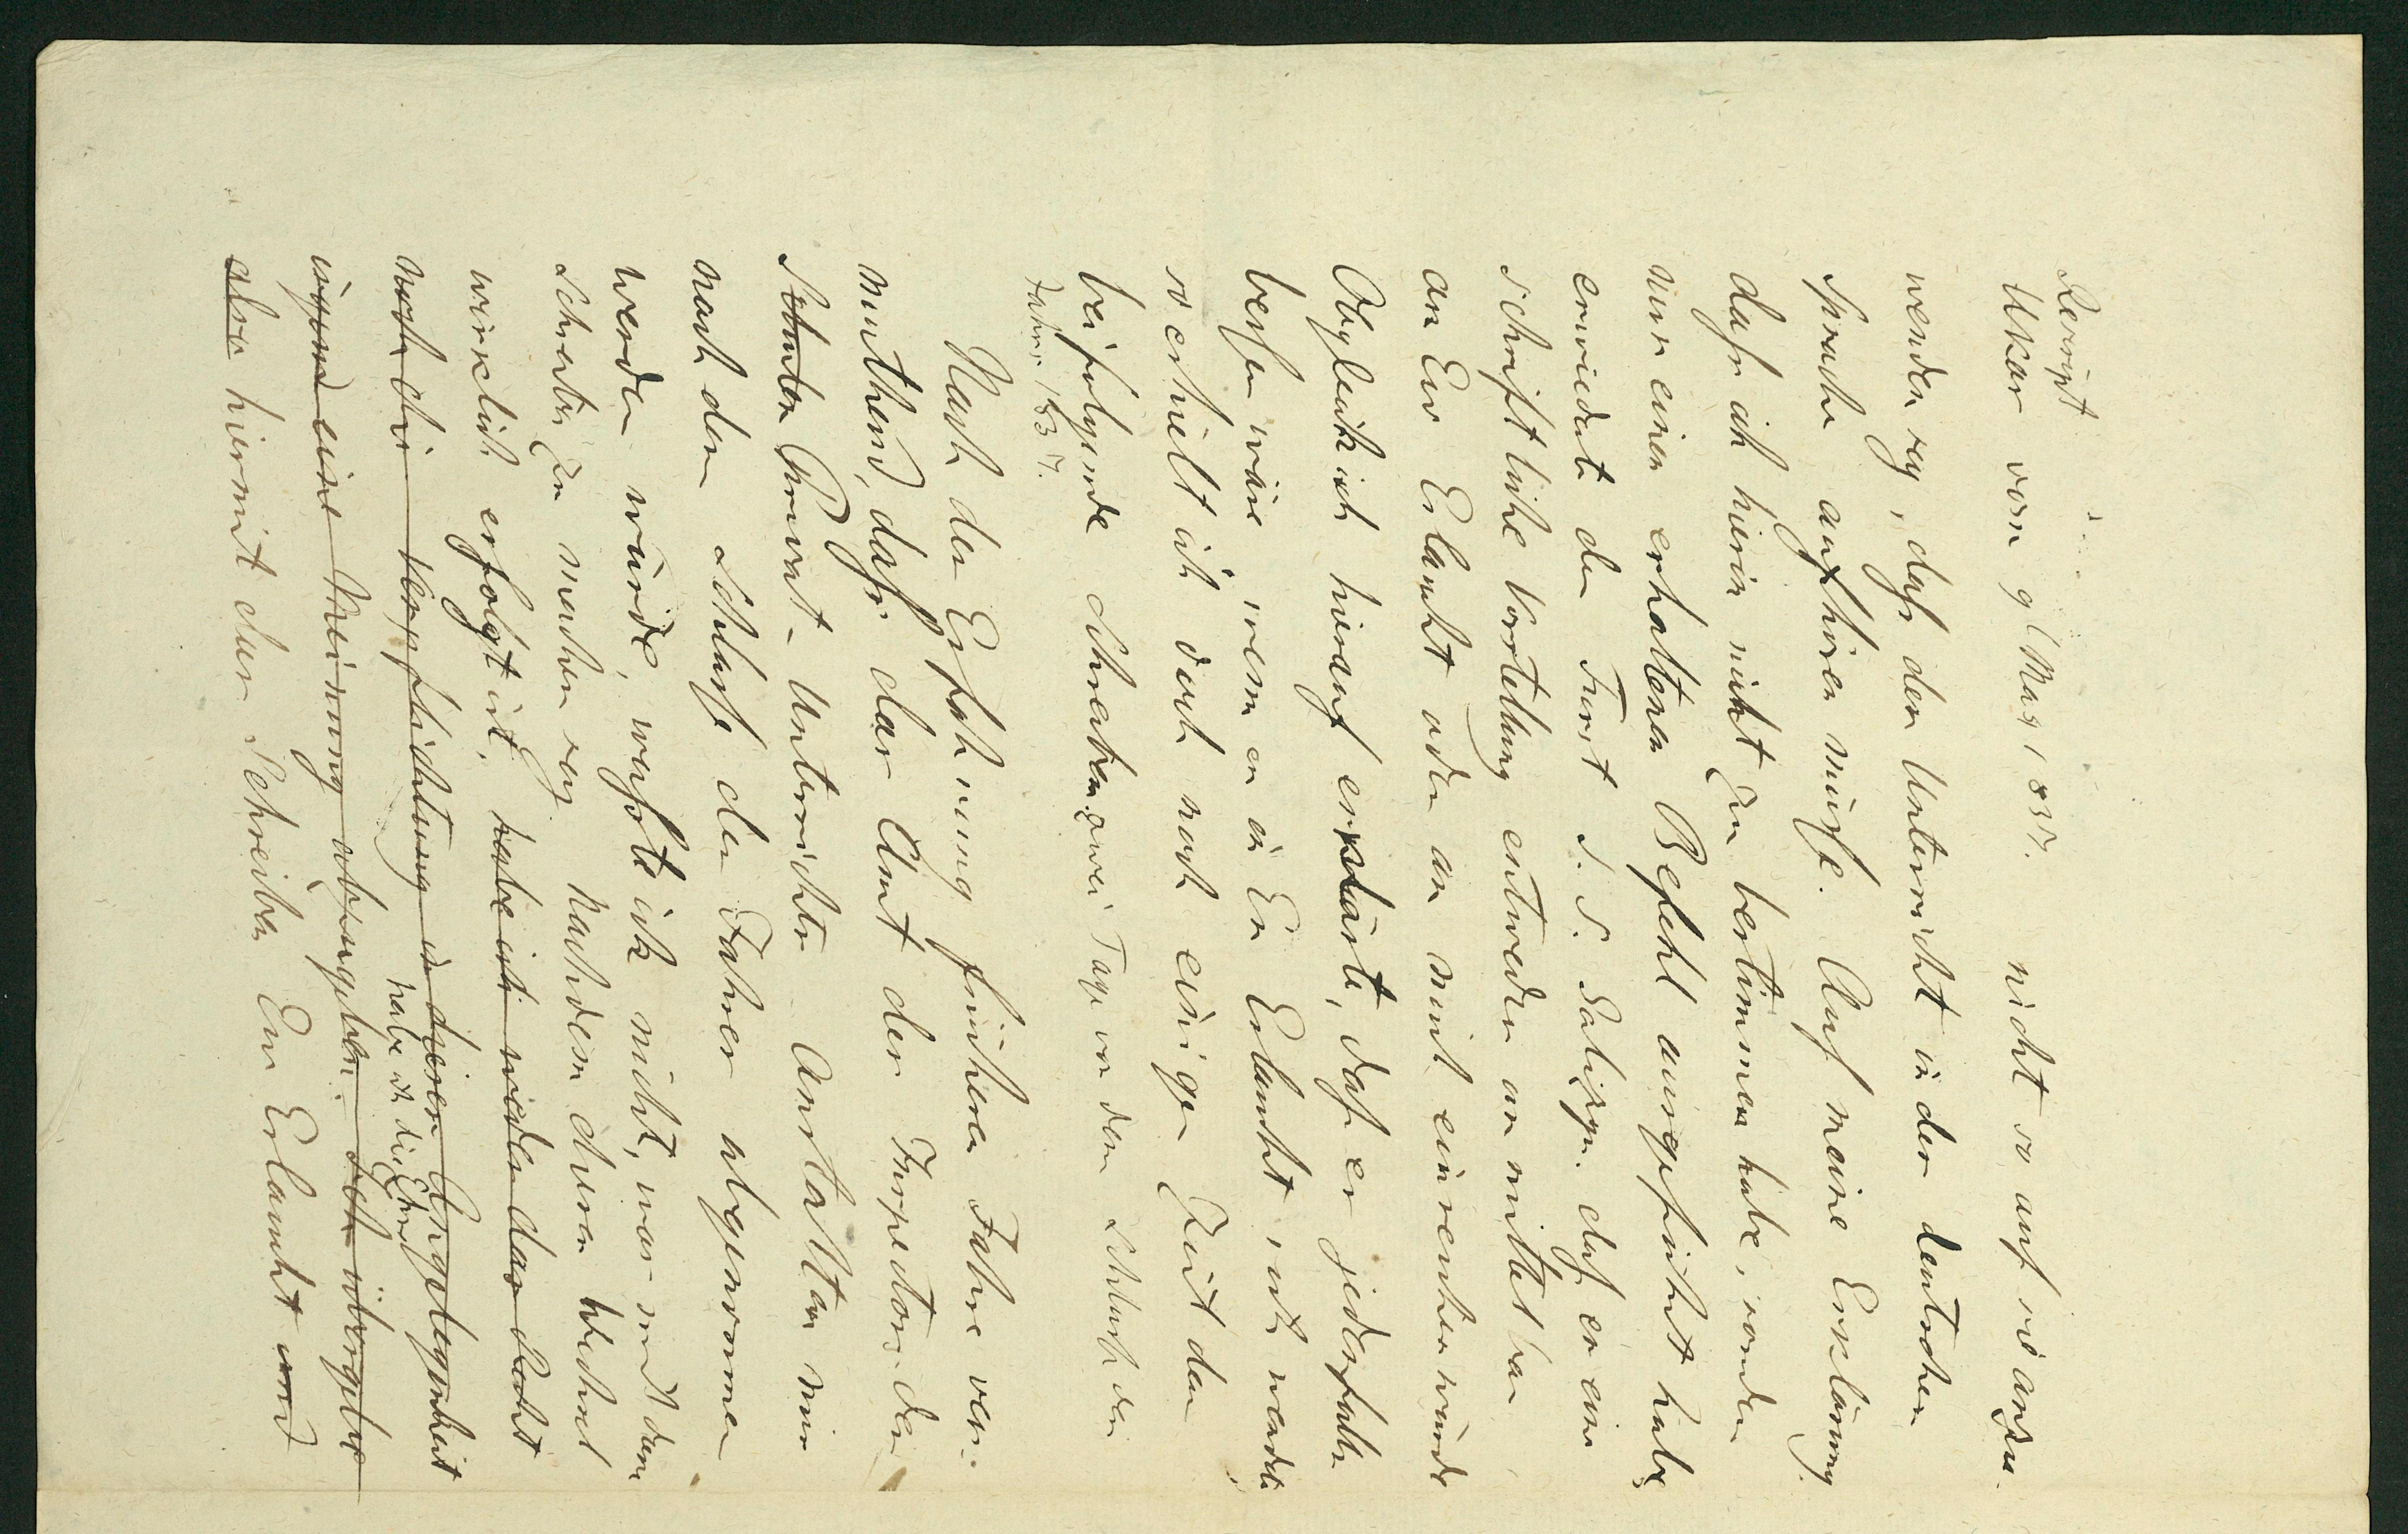 Rescript
Ukas vom 9 Mai 1837. nicht so auf sie anzu-
wenden sey, daß der Unterricht in der deutschen
Sprache aufhören müsse. Auf meine Erklärung,
daß ich hierin nicht zu bestimmen habe, sondern
nur einen erhaltenen Befehl ausgeführt habe,
erwiederte der Fürst daß er eine
schriftliche Vorstellung entweder unmittelbar
an Ew Erlaucht oder an mich einreichen würde
Obgleich ich hierauf erklärte, daß es jedenfalls
besser wäre wenn er Ew Erlaucht
so erhielt ich doch nach einiger Zeit das
beifolgende Schreiben. zwei Tage vor dem Schluß des
Jahres 1837.
Nach der Erfahrung früherer Jahre ver-
muthend, daß das Amt der Inspektors der
Privat-Unterrichts Anstalten mir
nach dem Schlusse des Jahres abgenommen
werden würde, wußte ich nicht, was mit dem
Schreiben zu machen sey. Nachdem dieser Wechsel
wirklich erfolgt ist, habe ich weder das Recht
noch die Verpflichtung in dieser Angelegenheit
habe ich die Ehre
irgend eine Meinung abzugeben. Ich übergebe
also hiermit das Schreiben Ew Erlaucht und